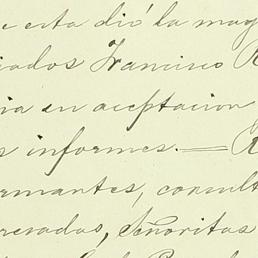 e esta dió la mag
iados Francisco R
ia en aceptacion
s informes.— R
rmantes, consult
resados, Señoritas